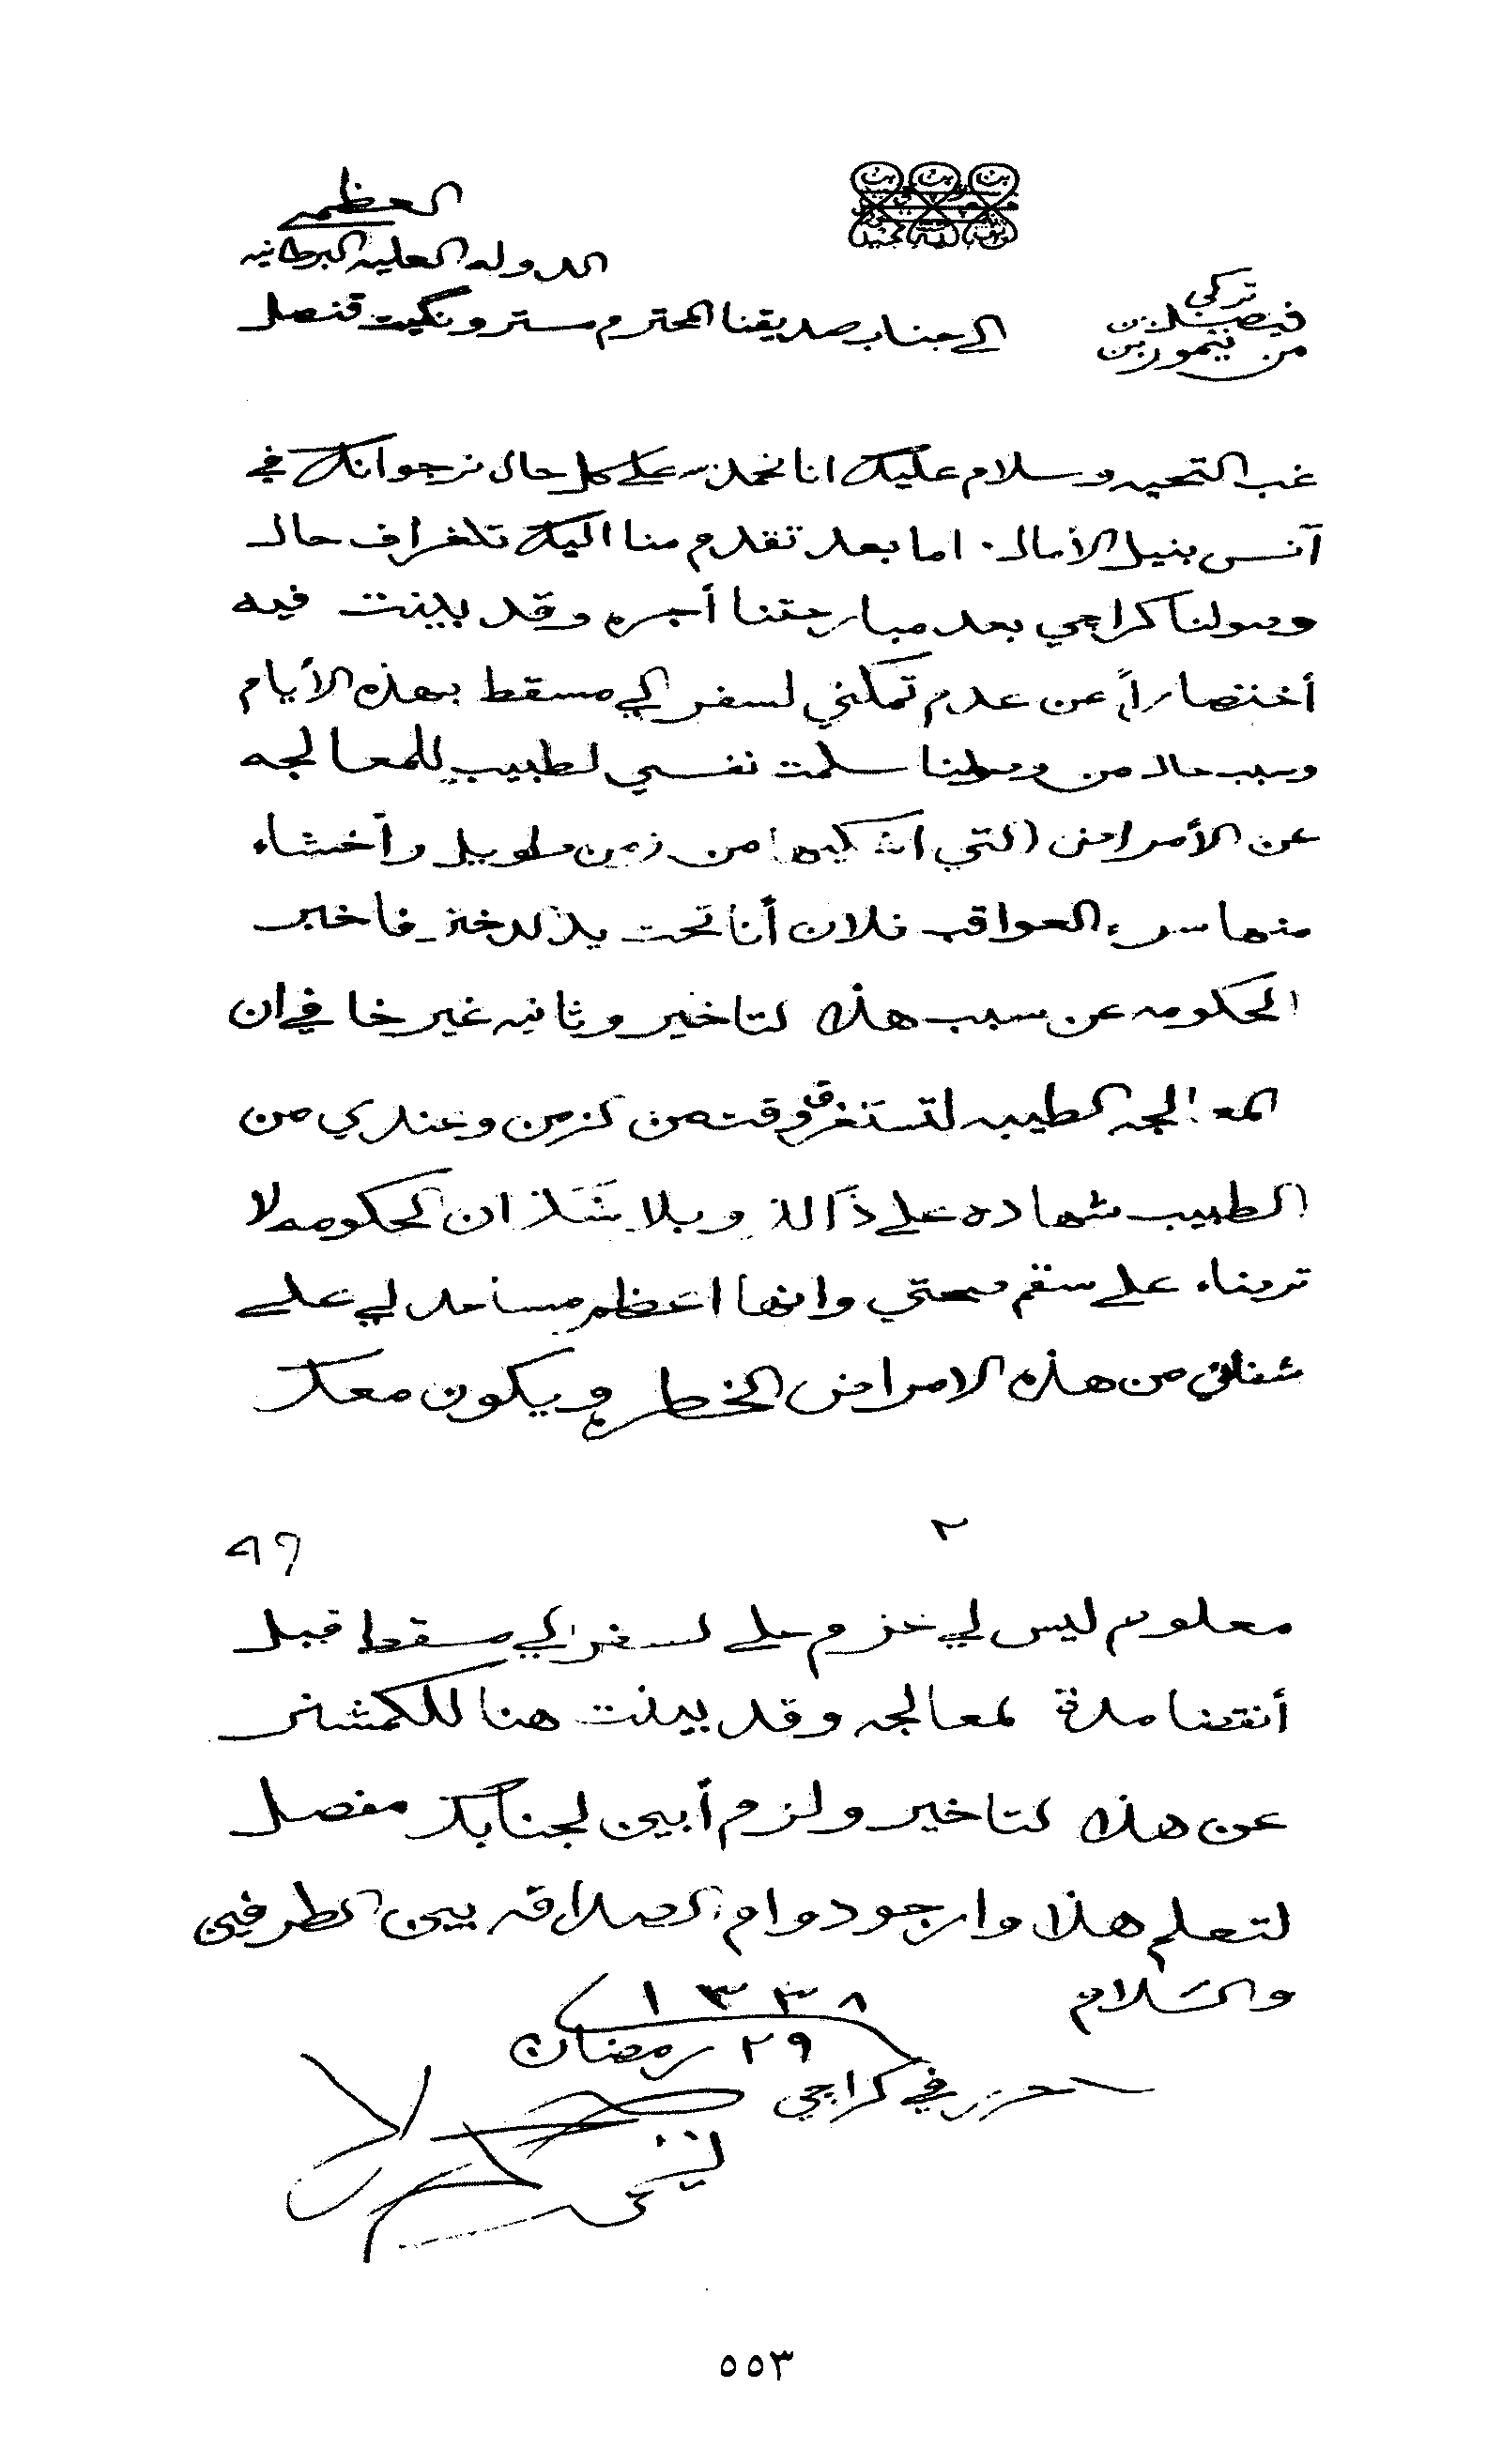 العظمى
الدوله العليه البرطانيه
تركي
فيصل بن
من تيمور بن
الى جناب صديقنا المحترم مستر ونگيت قنصل
غب التحيه وسلام عليك انا نحمد على كل حال نرجوا انك في
آنس بنيل الأمال. اما بعد تقدم منا اليك تلغراف حال
وصولنا كراچي بعد مبارحتنا أجره وقد بينت فيه
أختصاراً عن عدم تمكني لسفر الي مسقط بهذه الأيام
وسبب حال من وصولنا سلمت نفسي لطبيب للمعالجه
عن الأمراض التي اشكيها من زمن طويل وأخشاء
منها سوء العواقب فلان أنا تحت يد فاخبر
الحكومه عن سبب هذا لتاخير وثانيه غير خافي ان
المعالجه الطبيه لتستغرق وقت من لزمن وعندي من
الطبيب شهاده على ذالك وبلا شك ان الحكومه لا
ترضاء على سقم صحتي وانها اعظم مساعد لي على
شفائي من هذه الامراض الخطره ويكون معك
٢
٤٩
معلوم ليس لي عزم على لسفر الي مسقط قبل
أنقضا مدة لمعالجه وقد بينت هنا للكمشنر
عن هذا لتاخير ولزم أبين لجنابك مفصل
لتعلم هذا وارجو دوام الصداقه بين الطرفين
والسلام
١٣٣٨
٢٩ رمضان
حرر في كراچي
٥٥٣